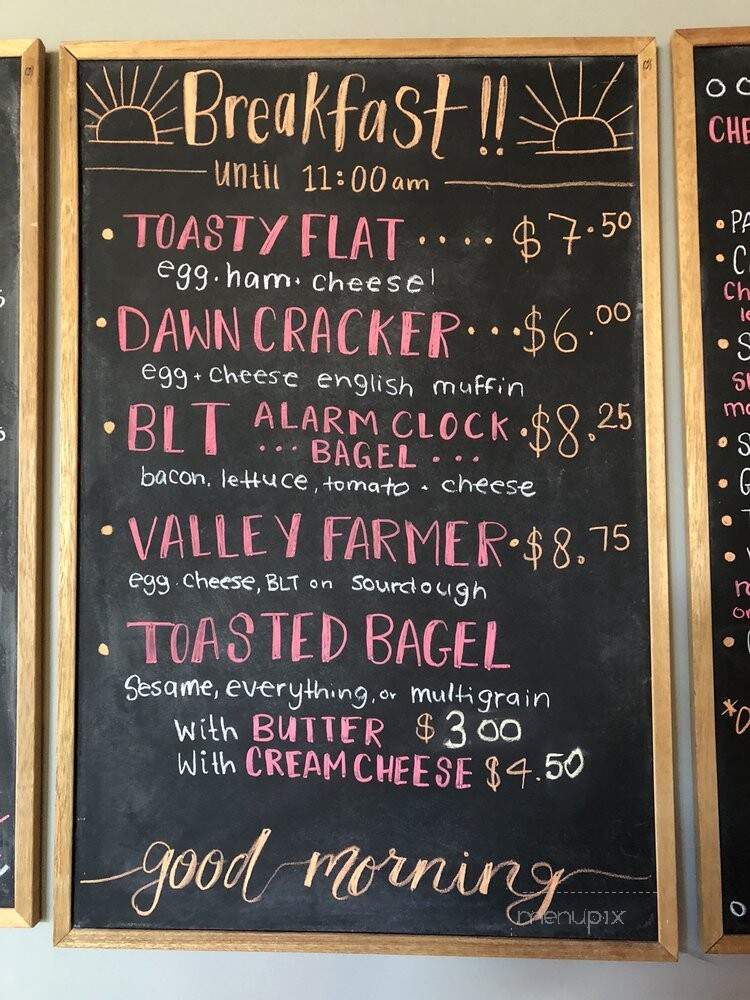 Breakfast!!
until 11:00am
• TOASTY FLAT .... $7.50
egg. ham. cheese!
• DAWN CRACKER...$6.00
egg + cheese english muffin
• BLT ALARM CLOCK .$8.25
... BAGEL ...
bacon, lettuce, tomato + cheese
• VALLEY FARMER.$8.75
egg. cheese, BLT on sourdough
• TOASTED BAGEL
Sesame, everything, or multigrain
with BUTTER $3 00
With CREAM CHEESE $4.50
good morning
menupix
CHE
PA